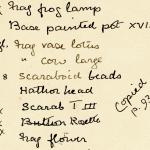 frag frog lamp
Base painted pot XVI
frag vase lotus
" cow large
8 Scaraboid beads
Hathor head
x Scarab T III
x Button Rosette
x frag flower
Copied p. 93